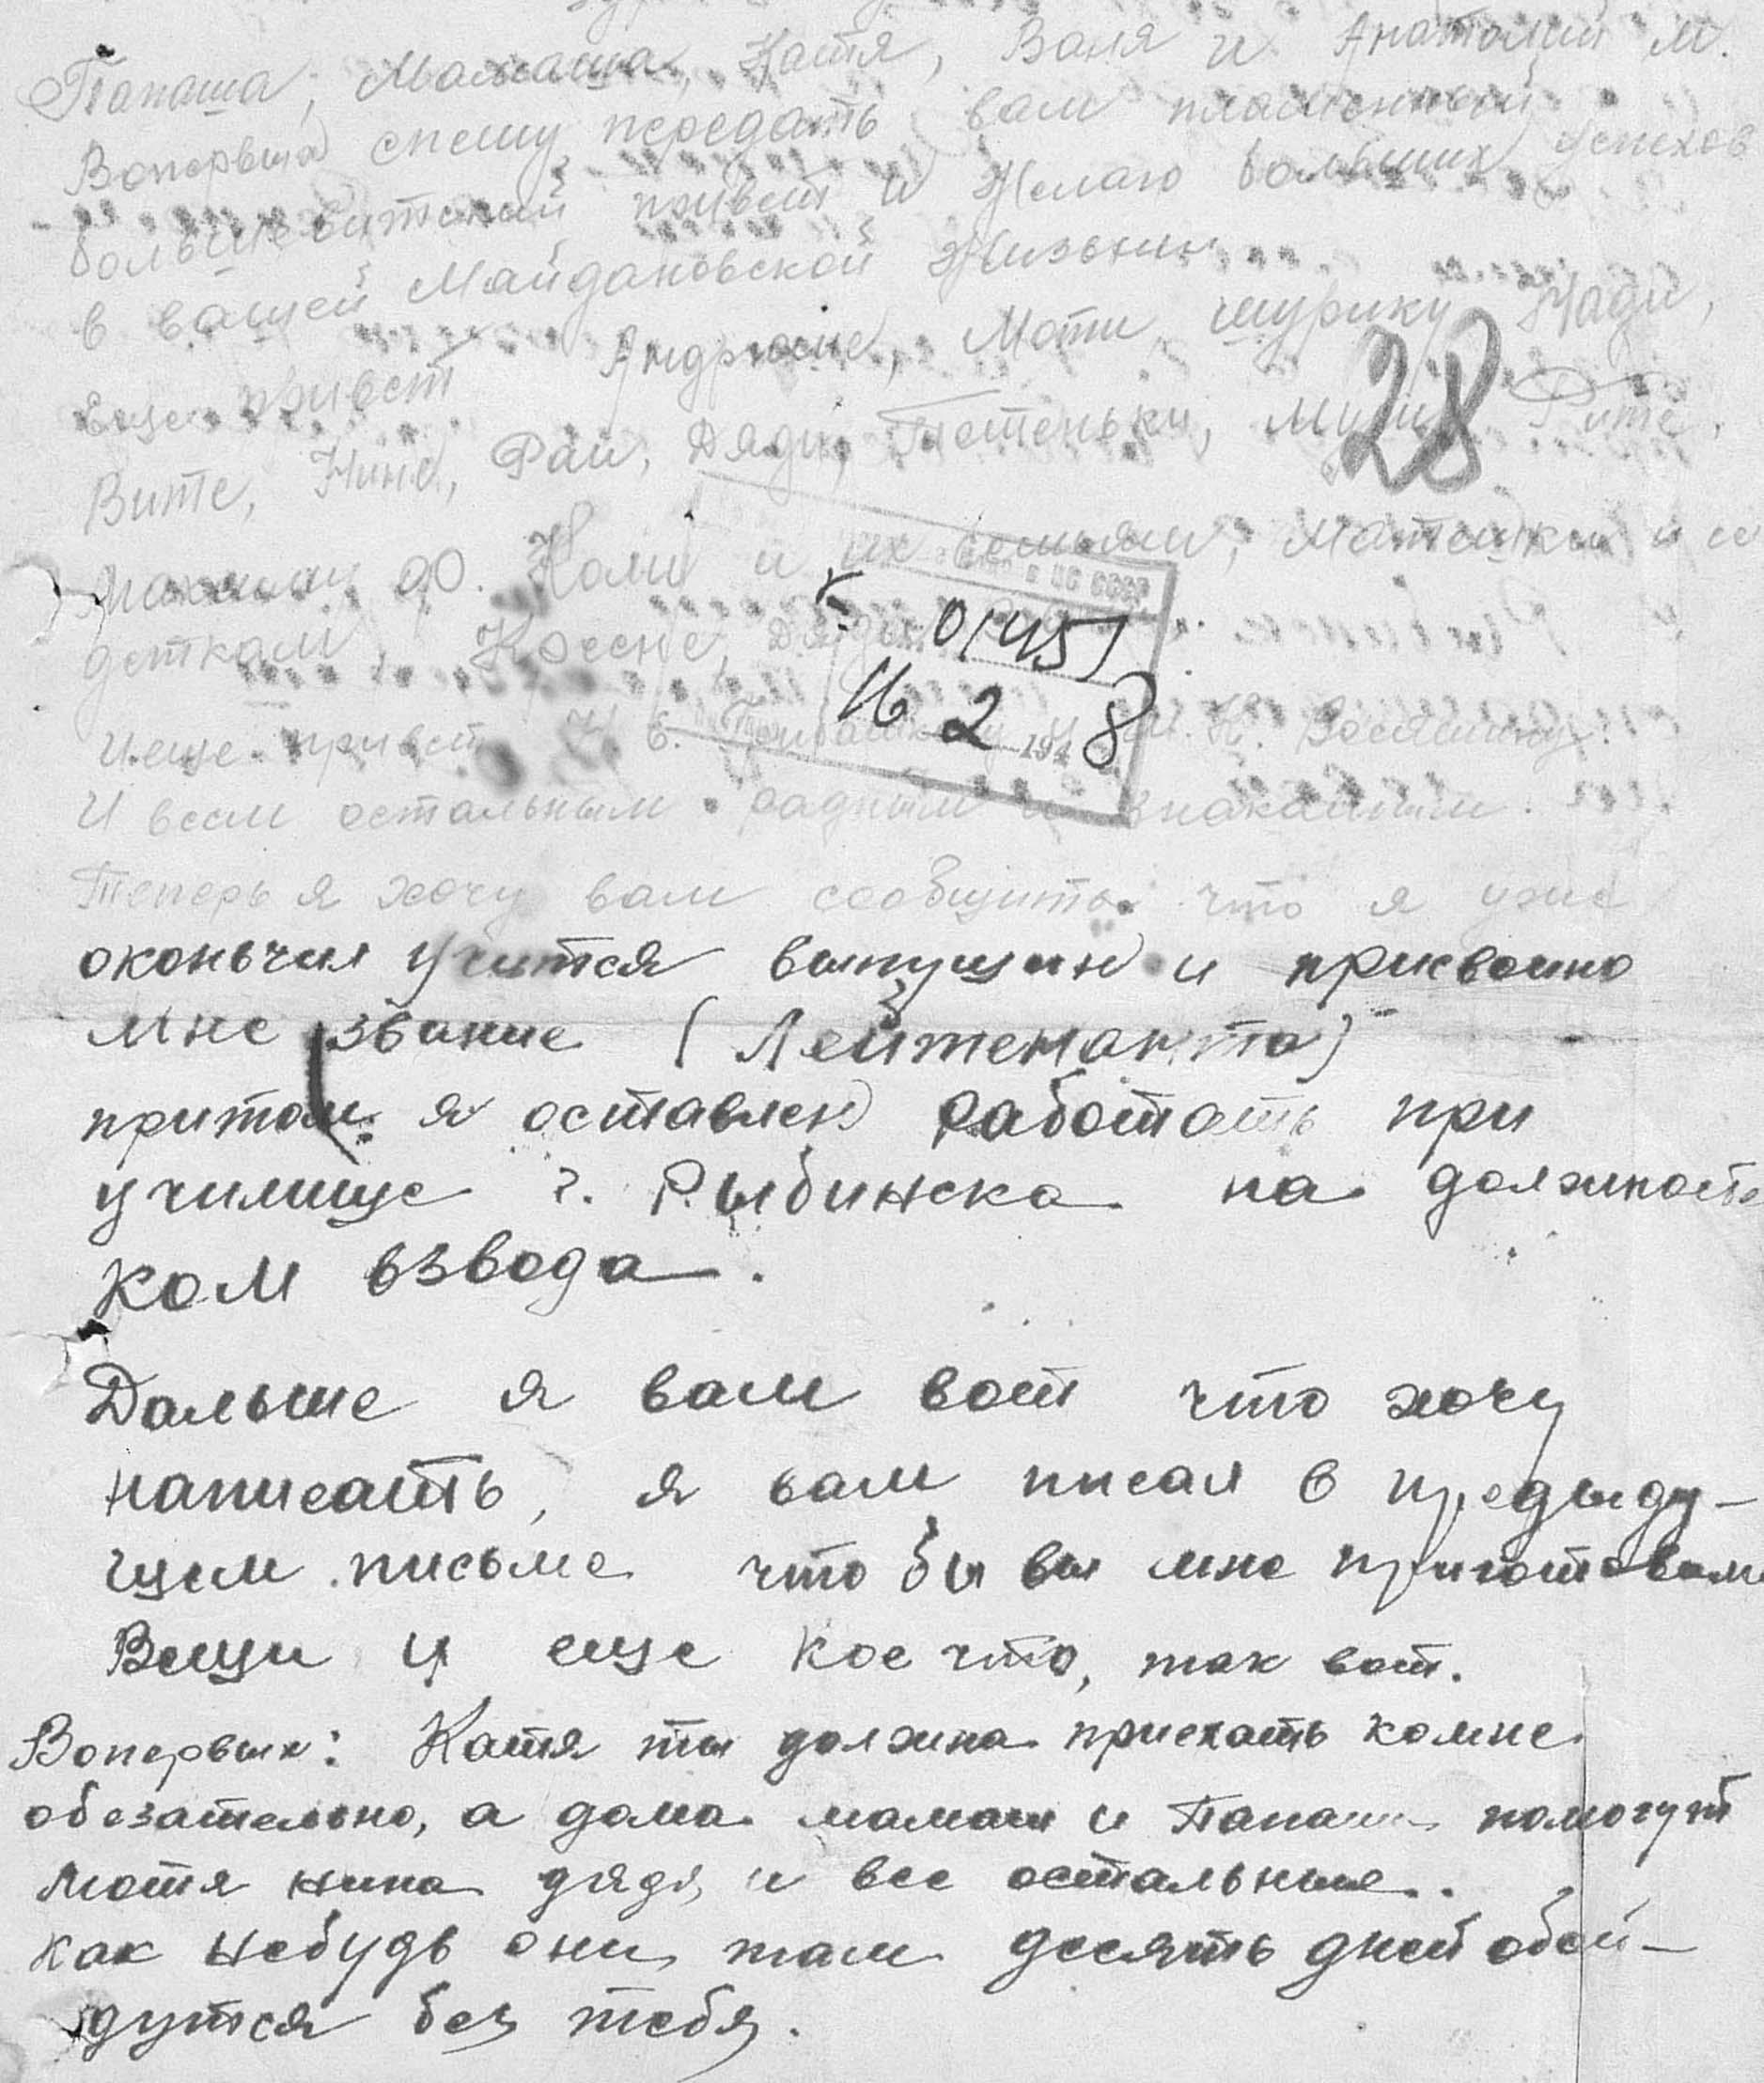 Папаша, Мамаша, Катя, Валя и Анатолий М.
Вопервых спешу передать вам пламенный
большевитский привет и Желаю больших успехов
в вашей Майдановской Жизьнин
Еще привет Андрюше, Моти, шурику, Нади,
Вите, Нине, Раи, Дяди, Тетеньки, Рите,
28
до. Коли и их семьями, и ее
деткам,
К. 01451
16 2 1948
и еще привет
И всем остальным радным и знакомым.
Теперь я хочу вам сообщить что я уже
оконьчил учится выпущин и присвоино
мне звание (Лейтенанта)
притом я оставлен работать при
училище г. Рыбинска на должность
ком взвода.
Дальше я вам вот что хочу
написать, я вам писал в предыду-
щем письме что бы вы мне приготовили
Вещи и еще кое что, так вот.
Вопервых: Катя ты должна приехать комне
обезательно, а дома мамаши и Папаши помогут
мотя нина дядя и все остальные.
как небудь они там десять дней обой-
дутся без тебя.